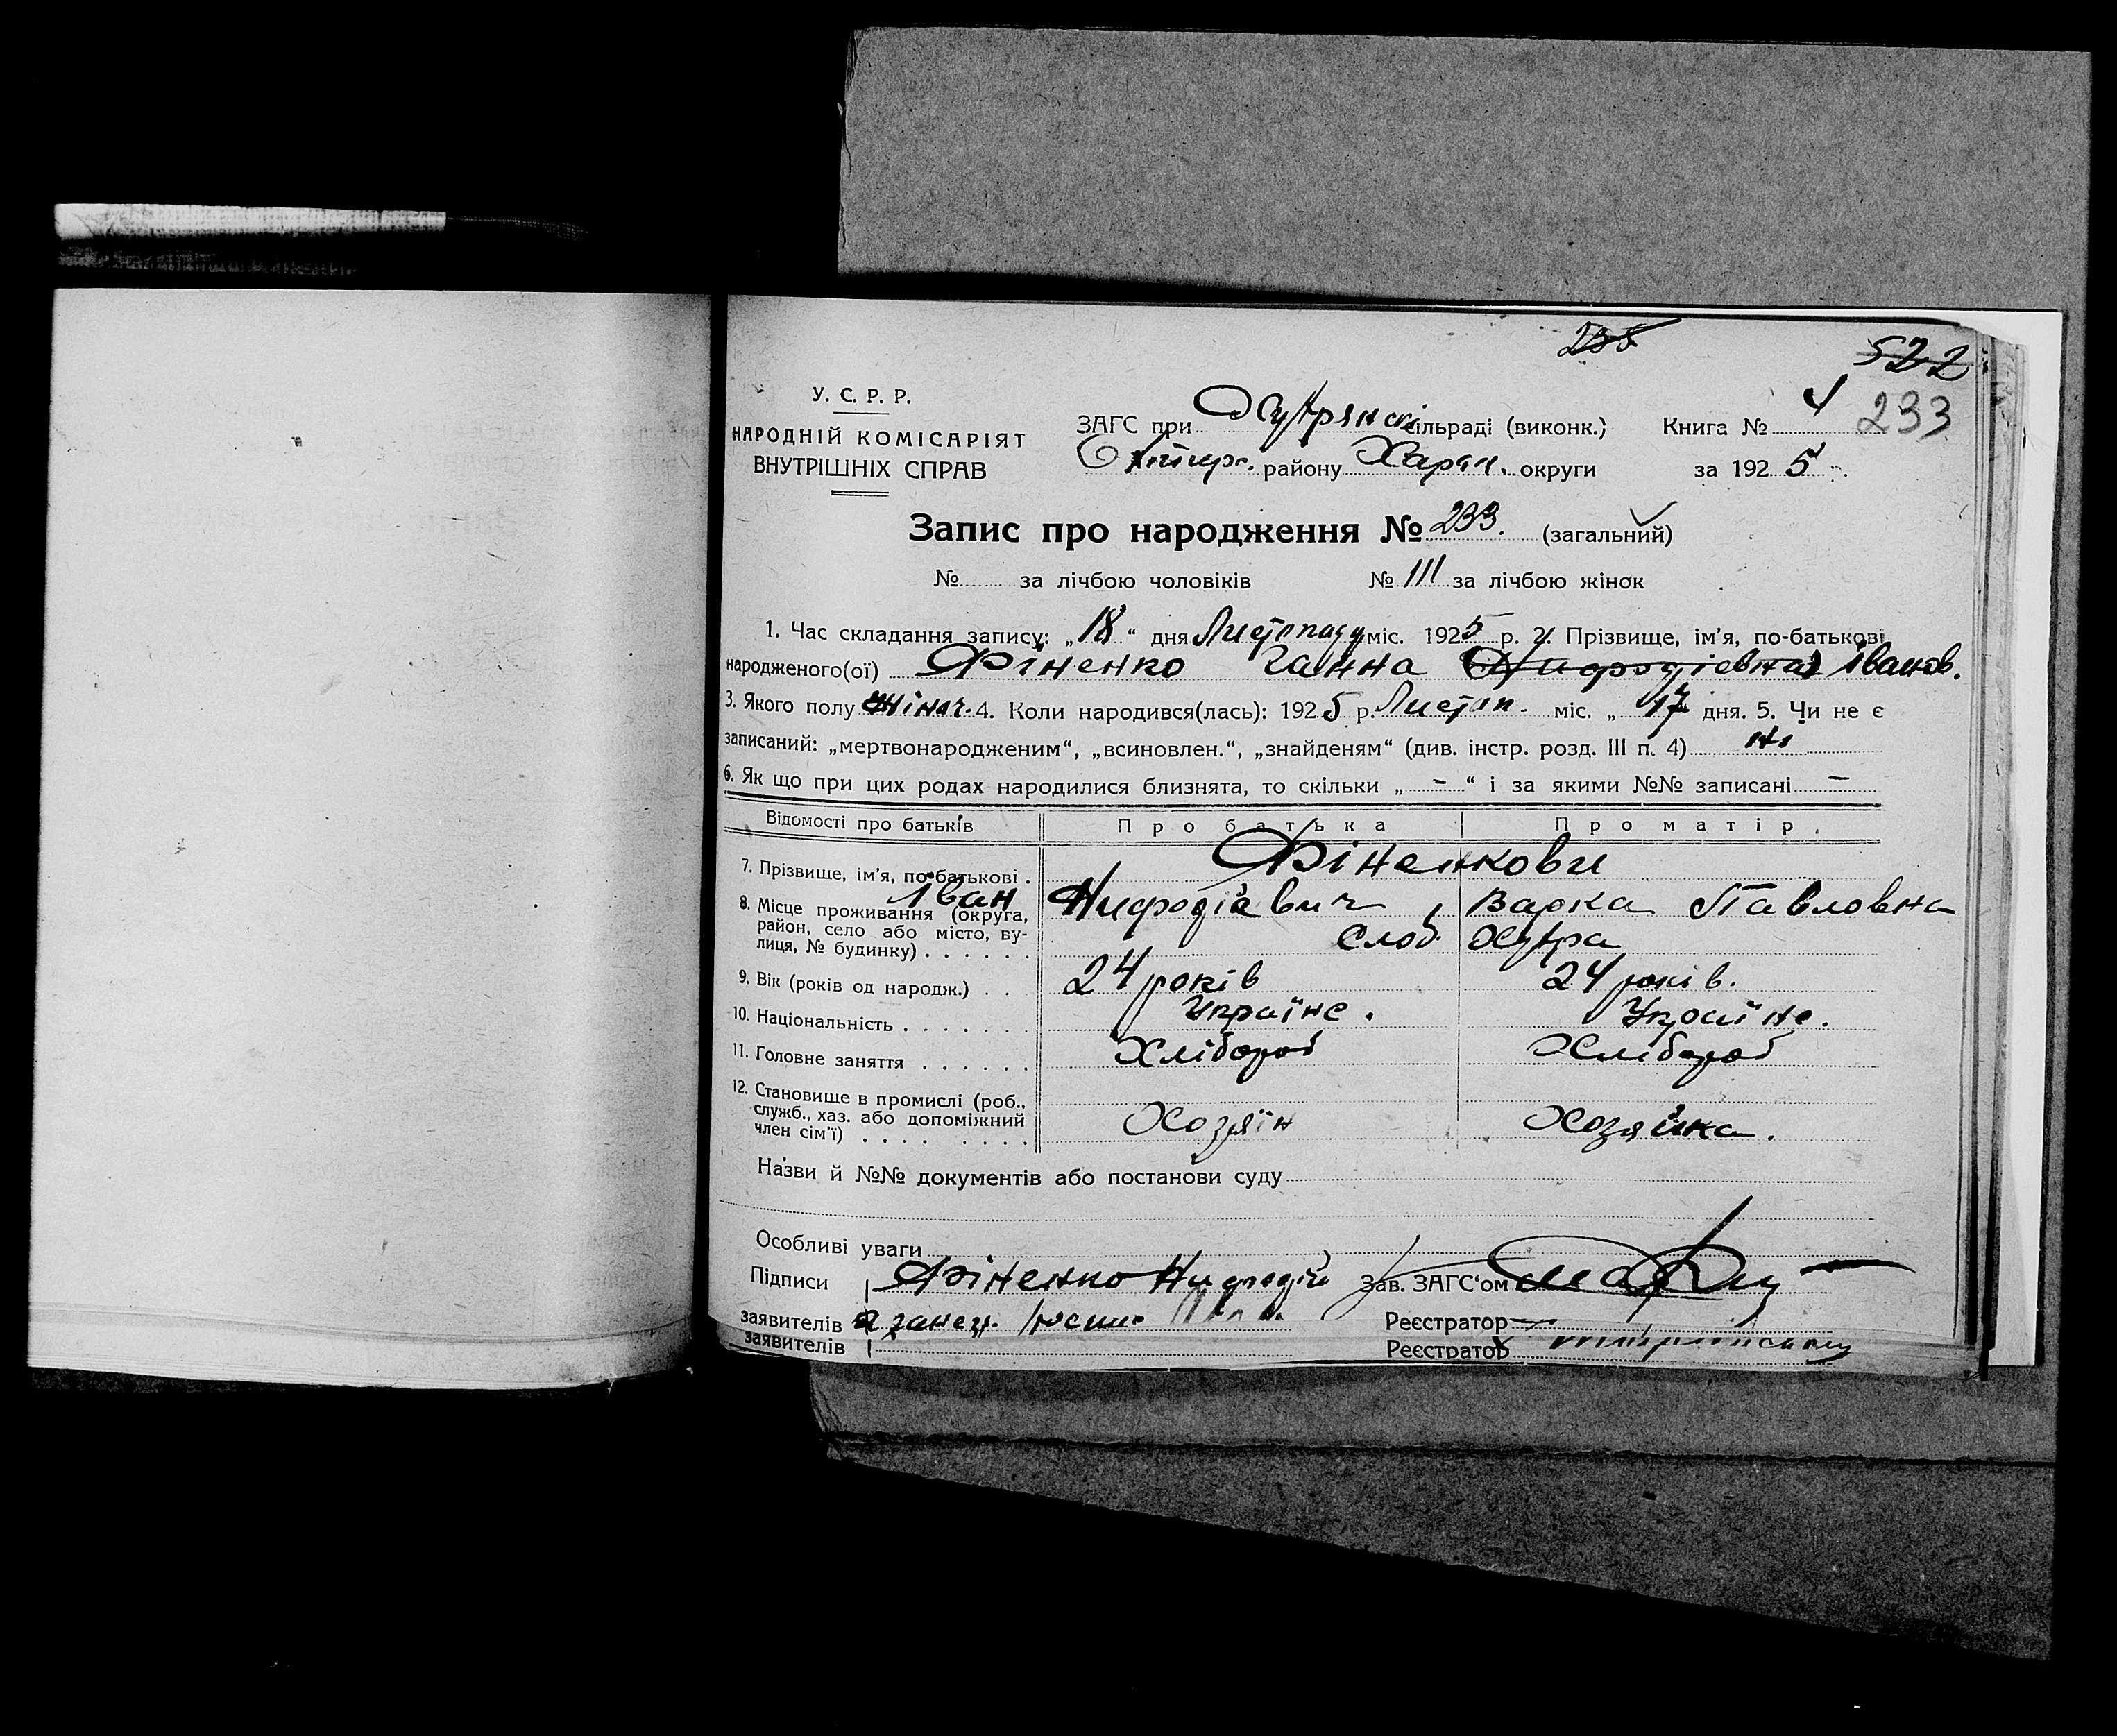 235
522
У. С. Р. Р.
НАРОДНІЙ КОМІСАРІЯТ
ВНУТРІШНІХ СПРАВ
ЗАГС при сільраді (виконк.) Книга № 4 233
району Харк. округи за 1925 р.
Запис про народження № 233. (загальний)
№ за лічбою чоловіків № 111 за лічбою жінок
1. Час складання запису: „18“ дня Листопаду міс. 1925 р. 2. Прізвище, ім'я, по-батькові
народженого(ої) Фіненко Ганна (Нифодіевна) Іванов.
3. Якого полу жіноч. 4. Коли народився(лась): 1925 р. Листоп. міс. „17 дня. 5. Чи не є
записаний: „мертвонародженим“, „всиновлен.“, „знайденям“ (див. інстр. розд. III п. 4) ні
6. Як що при цих родах народилися близнята, то скільки „ – “ і за якими №№ записані –
Відомості про батьків Про батька Про матір.
7. Прізвище, ім'я, по-батькові . Фіненкови
Іван Нифодіавич , Варка Павловна
8. Місце проживання (округа,
район, село або місто, ву-
лиця, № будинку) . . . . . . слоб.
9. Вік (років од народж.) . . 24 років 24 років.
10. Національність . . . . . . . Україне. Україне.
11. Головне заняття . . . . . . Хлібороб Хлібороб
12. Становище в промислі (роб.,
служб., хаз. або допоміжний
член сім'ї) . . . . . . . . Хозяїн Хозяйка.
Назви й №№ документів або постанови суду
Особливі уваги
Підписи Фіненко Нифодій Зав. ЗАГС‘ом
заявителів Реєстратор
заявителів Реєстратор